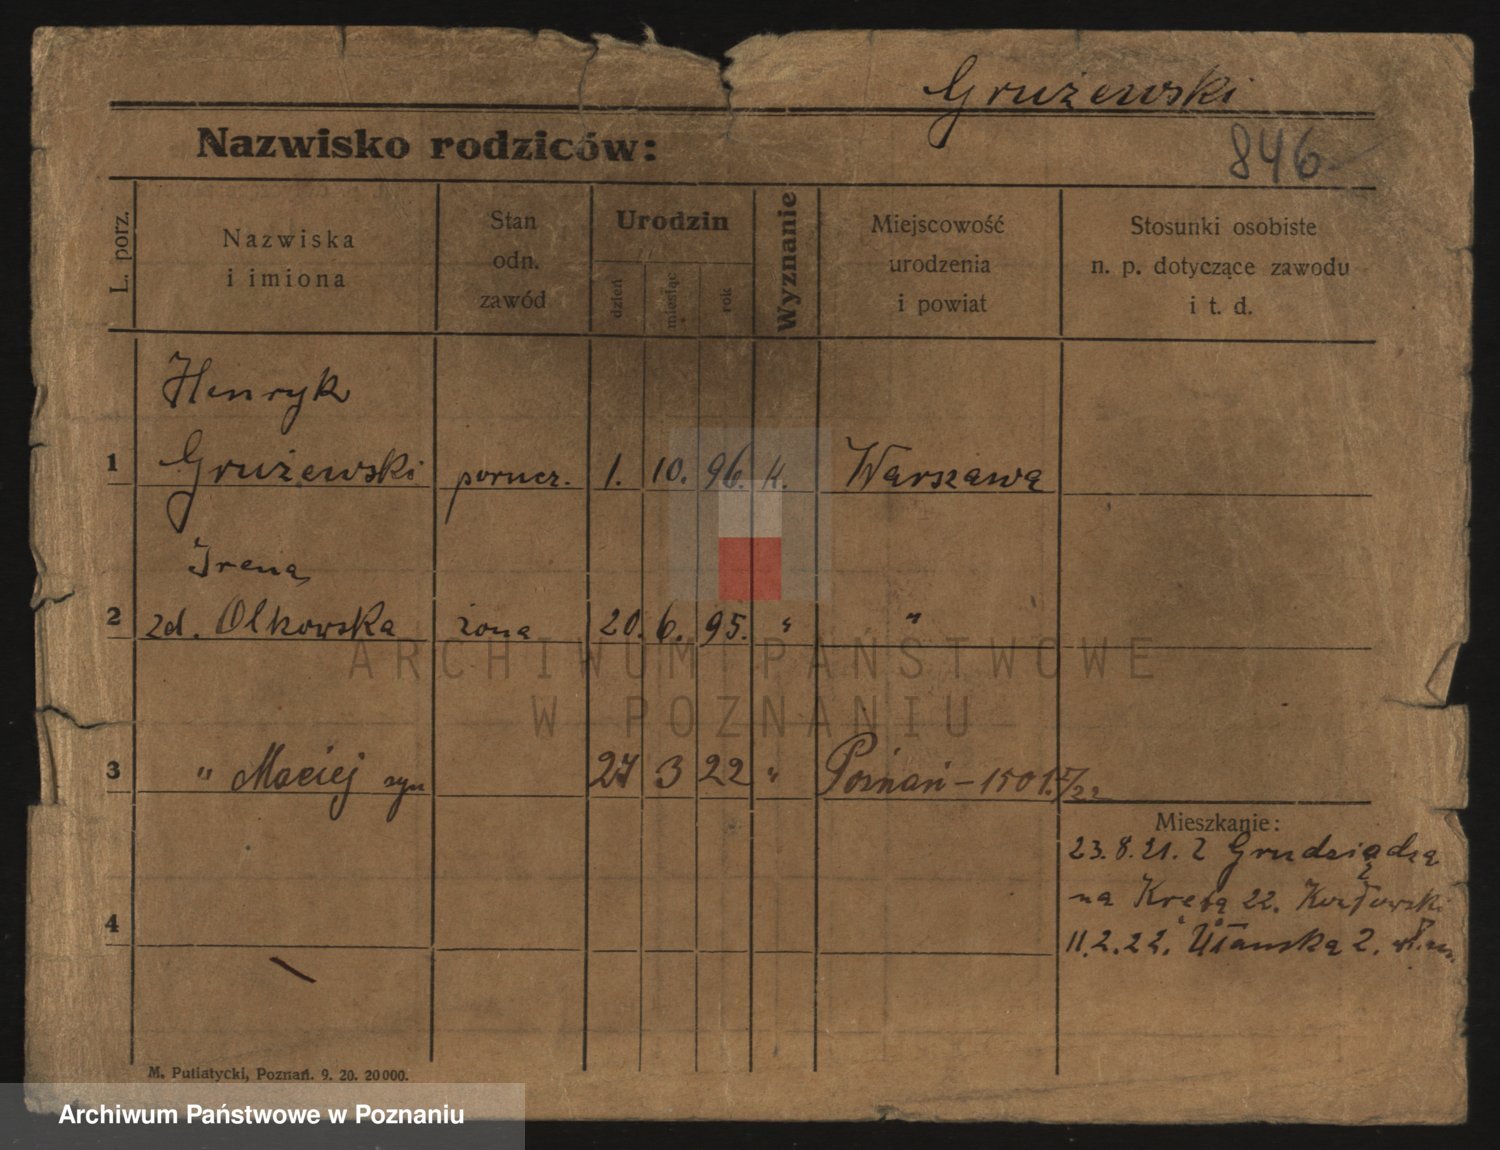 Grużewski
Nazwisko rodziców:
846
L. porz.
Nazwiska
i imiona
Stan
odn.
zawód
Urodzin
dzień
miesiąc
rok
Wyznanie
Miejscowość
urodzenia
i powiat
Stosunki osobiste
n. p. dotyczące zawodu
i t. d.
Henryk
1 Grużewski porucz. 1. 10. 96. k. Warszawa
Irena
2 zd. Olkowska żona 20. 6. 95. " "
3 " Maciej syn 27 3 22 " Poznań - 1501.
Mieszkanie:
23.8.21. z Grudziądza
na 22.
4
11.2.22. Ułańska 2.
M. Putiatycki, Poznań. 9. 20. 20000.
ARCHIWUM PAŃSTWOWE
W POZNANIU
Archiwum Państwowe w Poznaniu